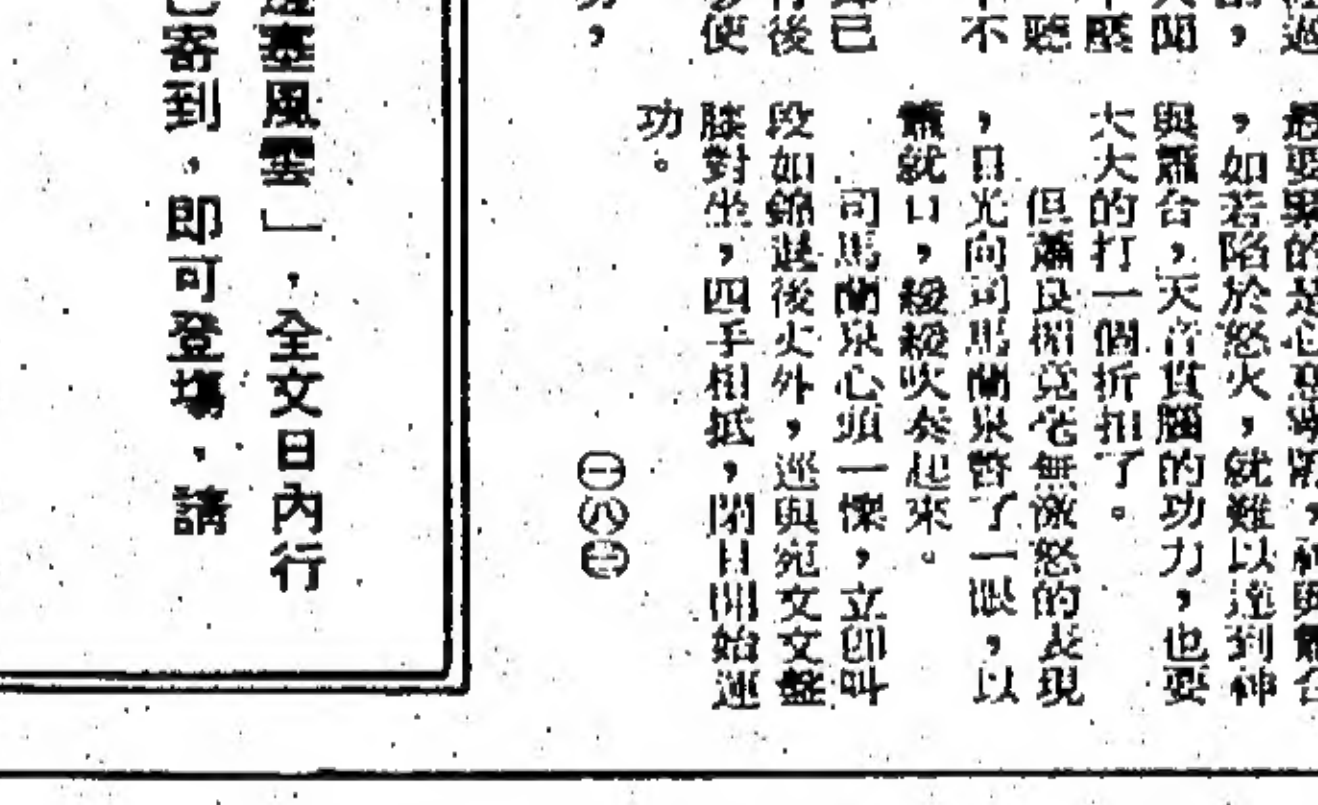 過
，
聞
壓
聽
不
已
後
便
，
最要緊的是心意專附，神與簫合
，如若陷於怒火，就難以達到神
與簫合，天音貫腦的功力，也要
大大的打一個折扣了。
但蕭良楫竟毫無激怒的表現
，目光向司馬蘭泉瞥了一眼，以
簫就口，緩緩吹奏起來。
司馬蘭泉心頭一懍，立卽叫
段如錦退後火外，逕與宛文文盤
膝對坐，四手相抵，閉目開始運
功。
㊀㊇㊆
塞風雲」，全文日內行
寄到，即可登場，請